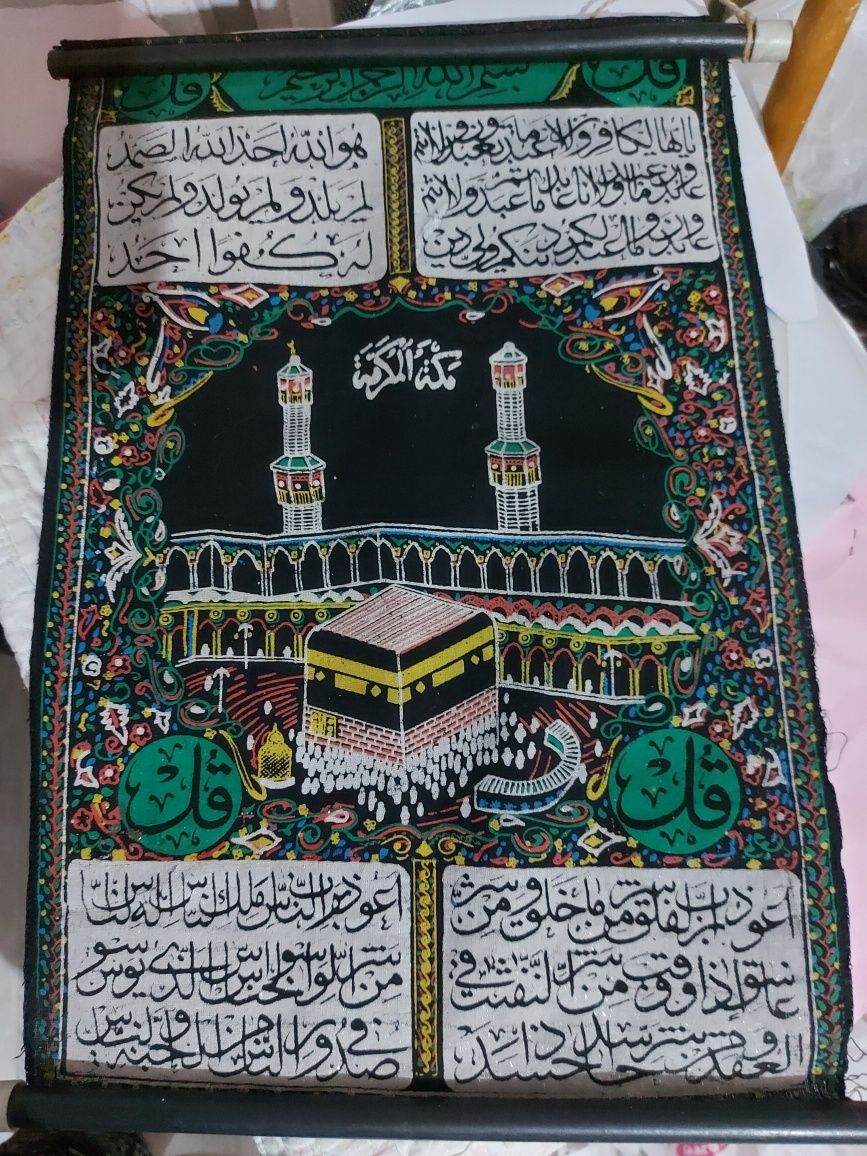 قل
بسم الله الرحمن الرحيم
قل
يايها الكافرون لا اعبد ما تعبدون ولا انتم
عابدون ما اعبد ولا انا عابد ما عبدتم ولا انتم
عابدون ما اعبد لكم دينكم ولي دين
هُوَ اللهُ اَحَد اَللهُ الصَمَدُ
لم يلد ولم يولد ولم يكن
لَهُ كُفُوًا اَحَدُ
مكة المكرمة
قل
قل
اعوذ برب الفلق من شر ما خلق ومن شر
غاسق اذا وقب ومن شر النفثت في
العقد ومن شر حاسد اذا حسد
اعوذ برب الناس ملك الناس اله الناس
من شر الوسواس الخناس الذي يوسوس
في صدور الناس من الجنة والناس